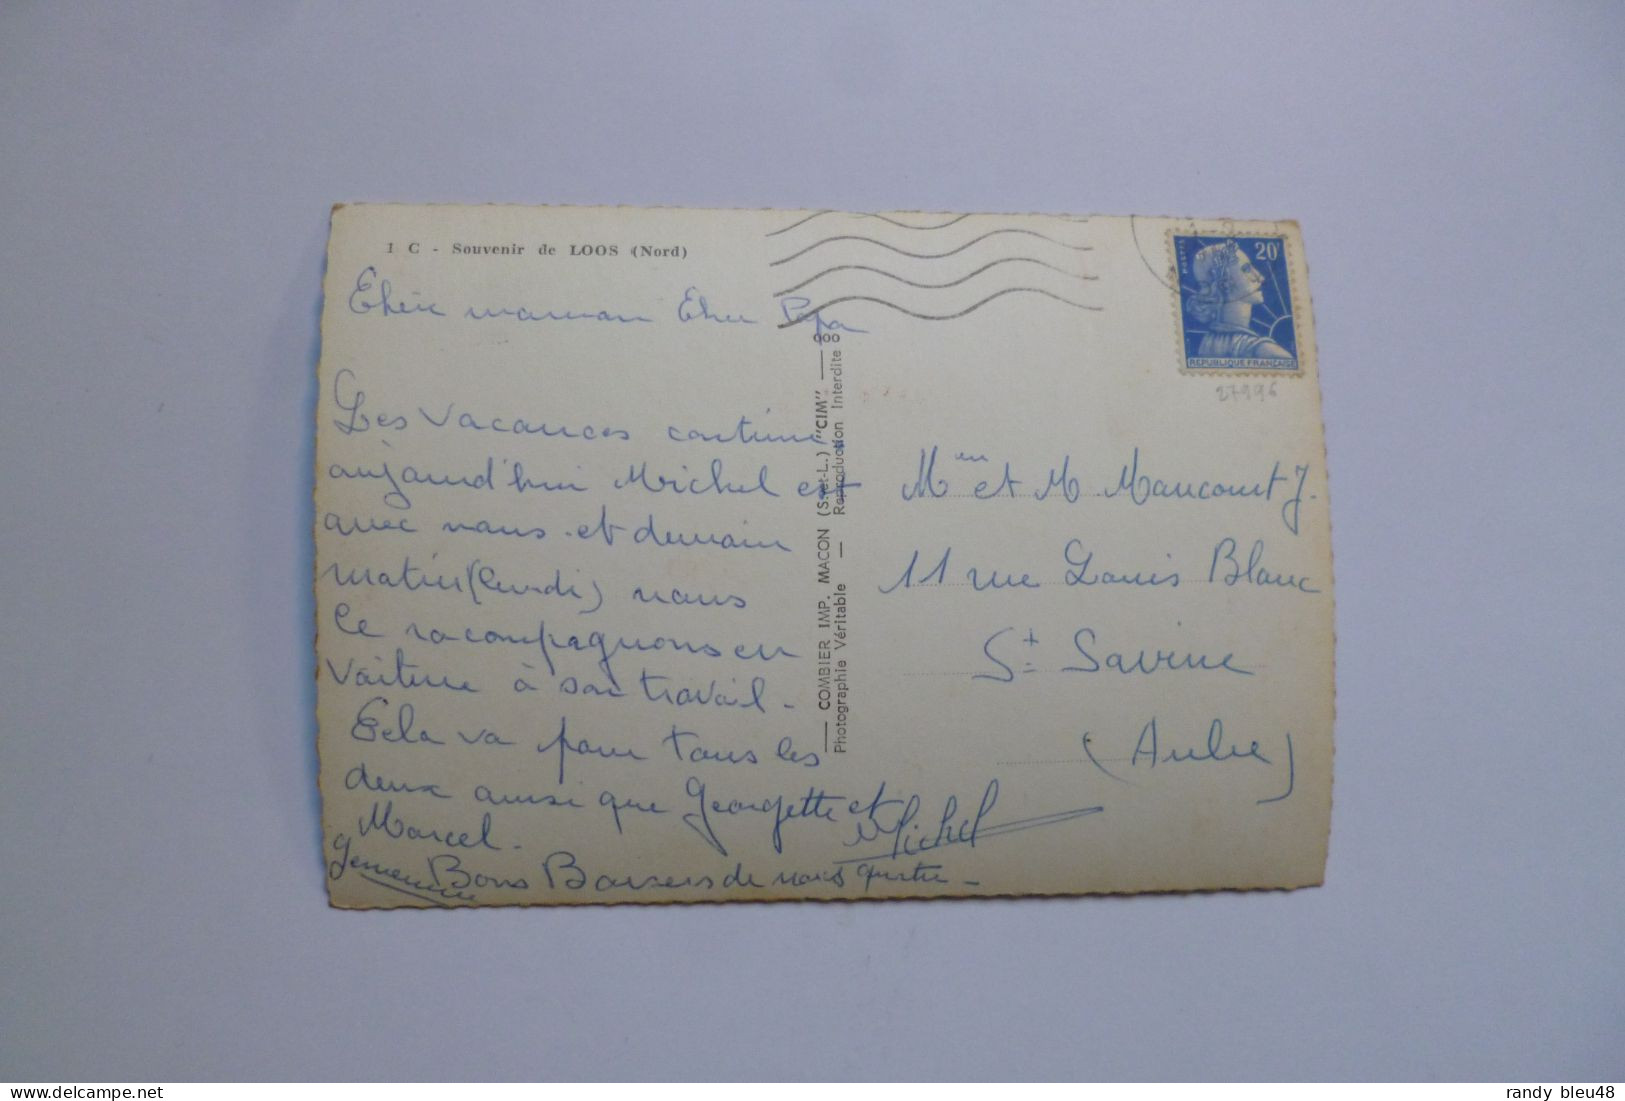 1 C - Souvenir de LOOS (Nord)
Chère maman Cher Papa
Les vacances continue
aujourd'hui Michel est
avec nous et demain
matin (lundi) nous
le racompagnons en
voiture à son travail -
Cela va pour tous les
deux ainsi que Georgette et
Marcel.
Bons Baisers de nous quatre -
Germaine
Michel
COMBIER IMP. MACON (S.-et-L.) "CIM"
Photographie Véritable — Reproduction Interdite
000
20F
POSTES
REPUBLIQUE FRANÇAISE
27996
Mme et M Maucourt J.
11 rue Louis Blanc
St Savine
(Aube)
randy bleu48